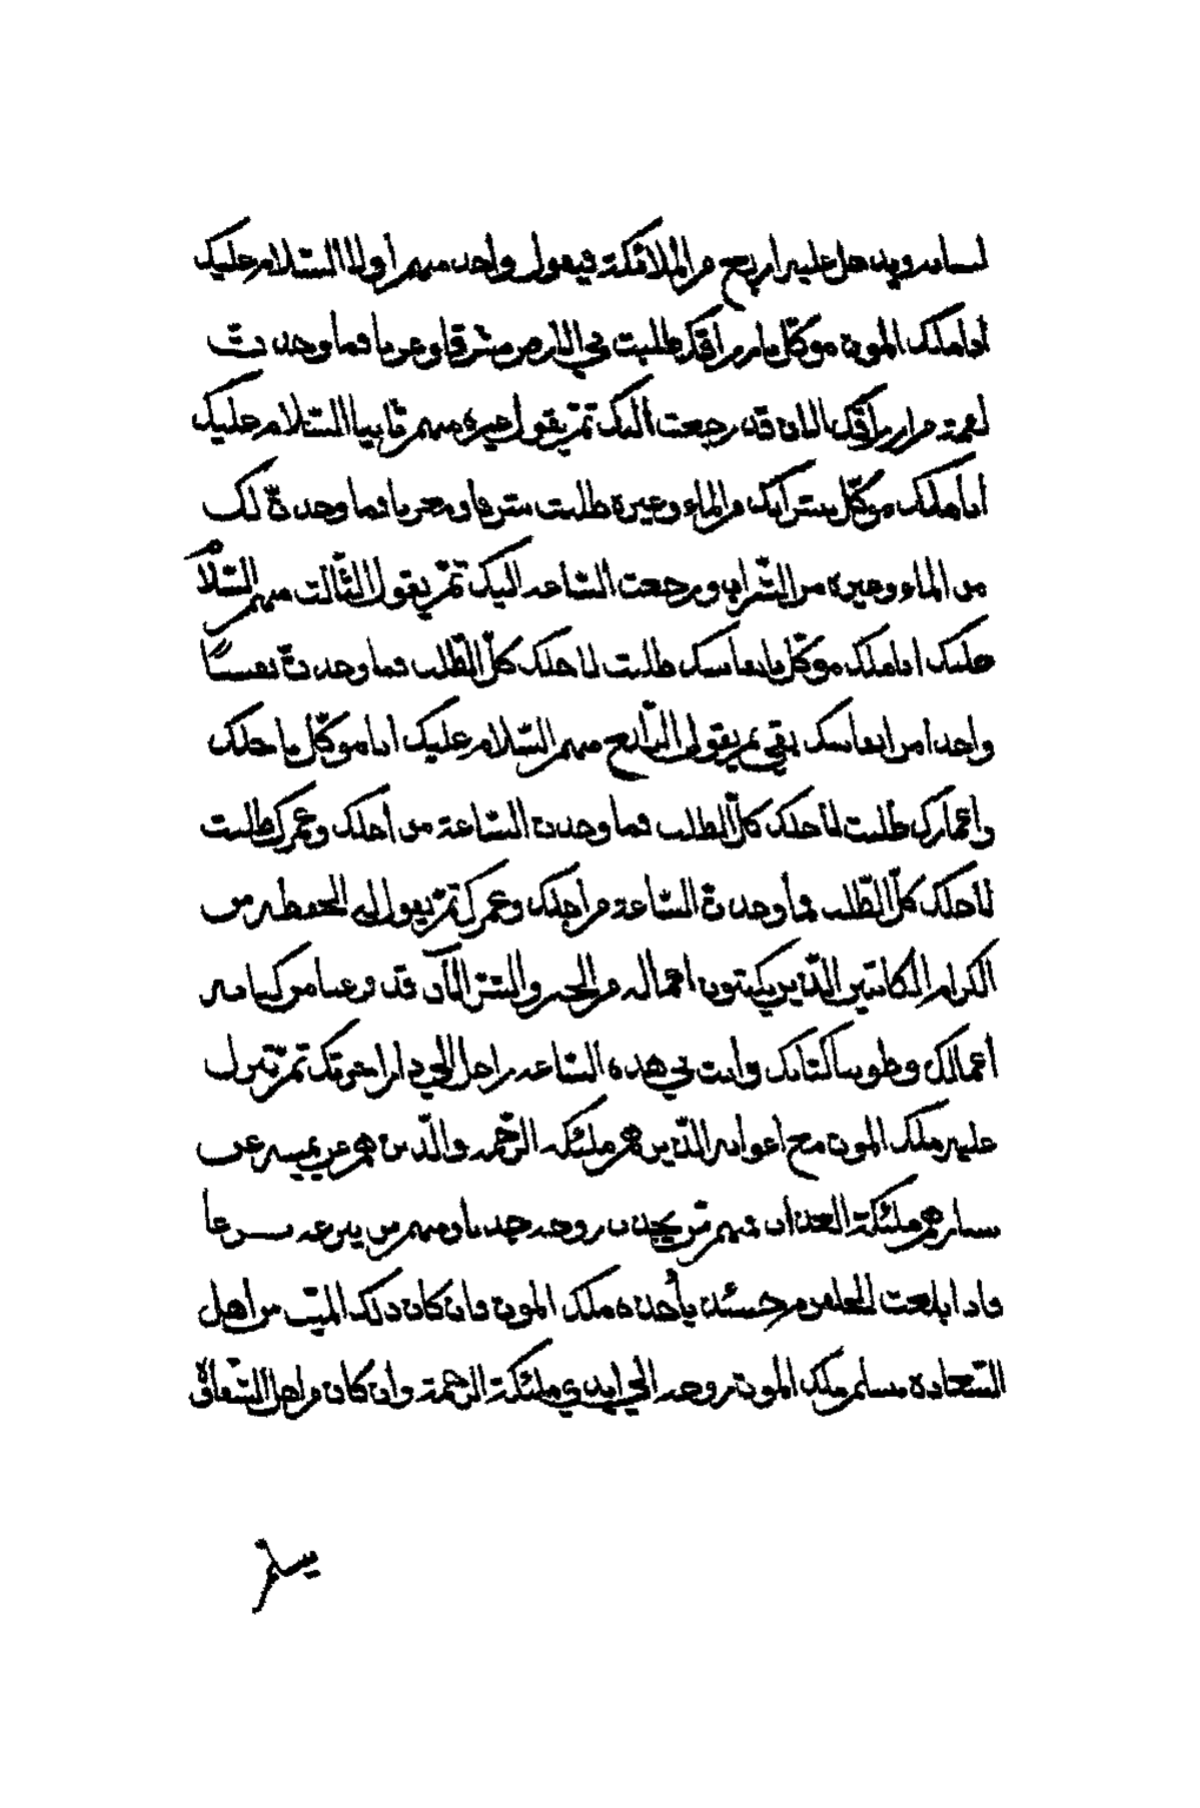 لسانه ويدخل عليه اربع من الملائكة فيقول واحد منهم أولا السّلام عليك
أنا ملك الموت موكّل بارزاقك طلبت في الارض شرقا وغربا فما وجدت
لقمة من ارزاقك الان قد رجعت اليك ثمّ يقول غيره منهم ثانيا السّلام عليك
أنا ملك موكّل بشرابك من الماء وغيره طلبت شرقا ومغربا فما وجدتّ لك
من الماء وغيره من الشّراب ورجعت السّاعه اليك ثمّ يقول الثّالث منهم السّلام
عليك انا ملك موكّل بانفاسك طلبت لاجلك كلّ الطّلب فما وجدتّ نفسًا
واحدا من انفاسك بقي ثم يقول الرّابع منهم السّلام عليك انا موكّل باجلك
واعمارك طلبت لاجلك كلّ الطلب فما وجدت السّاعة من أجلك وعمرك طلبت
لاجلك كلّ الطّلب فما وجدتّ السّاعة من اجلك وعمرك ثمّ يقول له الحفظه من
الكرام الكاتبين الّذين يكتبون اعماله من الخير والشّرّ الآن قد فرغنا من كتابه
أعمالك وطوينا كتابك وأنت في هذه السّاعه راحل الي دار اخرتك ثمّ تنزل
عليه ملك الموت مع اعوانه الّذين هم ملئكه الرّحمه والّذين هم عن يمينه عن
يساره هم ملئكة العذاب فمنهم من يجذب روحه جذبا ومنهم من ينزعه نــزعا
فاذا بلغت الحلقوم حينئذ يأخذه ملك الموت فان كان ذلك الميّت من اهل
السّعاده يسلم ملك الموت روحه الي ايدي ملئكة الرحمة وان كان من اهل الشّقاوة
يسلم